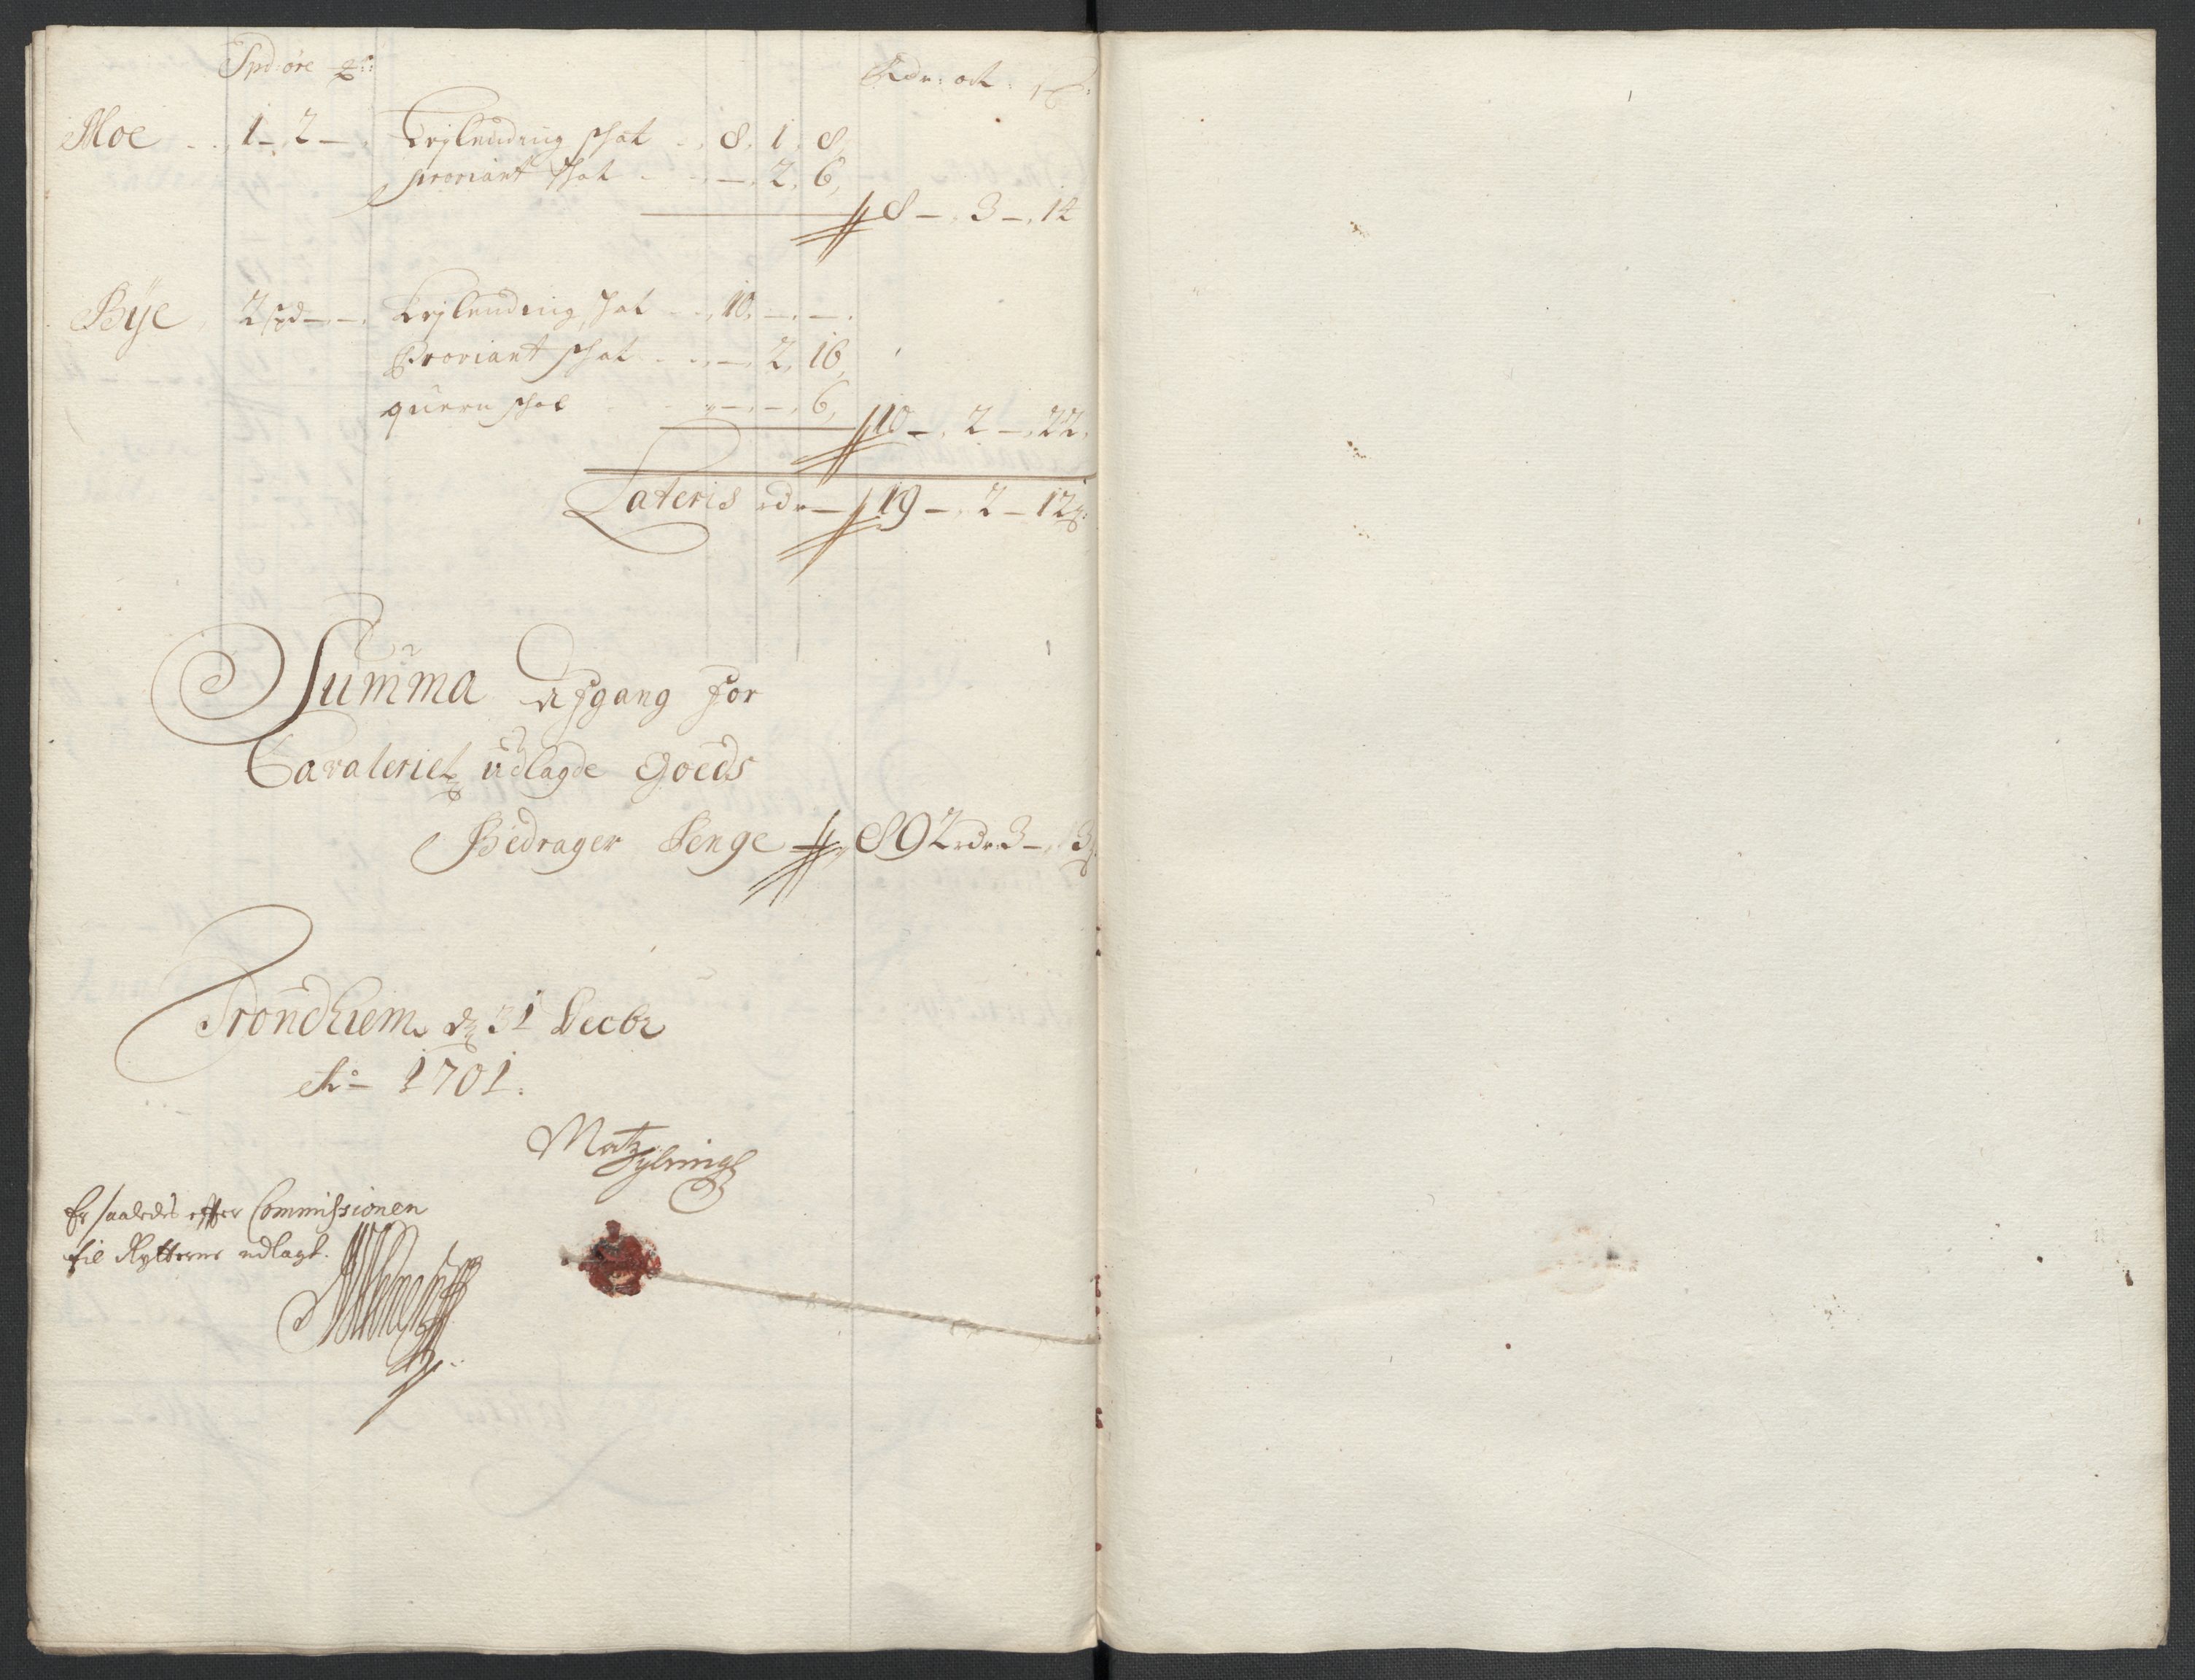 Spd øre
Rdr: ort: ß:
Moe .. 1 - 2 - Leylending schat .. 8, 1, 8,
proviant schat .. - 2, 6,
8 - 3 - 14
Bÿe, 2 spd - - Leylending schat .. 10, - -
Proviant schat .. - 2, 16,
quern schat - - - 6,
10 - 2 - 22,
Lateris rdr - 19 - 2 - 12ß:
Summa Afgang for
Cavaleriet udlagde Goeds
Bedrager Penge 892 rdr 3 - 3ß
Trondhiem d 31 Decbr
Ao 1701.
Er saaledes efter Commissionen
til Rytterne udlagt.